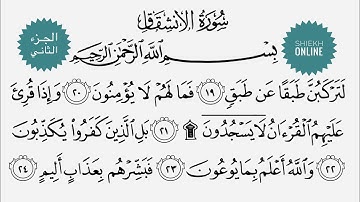 سُورَةُ الانشقاق
الجزء
الثاني
SHIEKH
ONLINE
بِسْمِ اللَّهِ الرَّحْمَٰنِ الرَّحِيمِ
لَتَرْكَبُنَّ طَبَقًا عَن طَبَقٍ ١٩ فَمَا لَهُمْ لَا يُؤْمِنُونَ ٢٠ وَإِذَا قُرِئَ
عَلَيْهِمُ الْقُرْءَانُ لَا يَسْجُدُونَ ۩ ٢١ بَلِ الَّذِينَ كَفَرُوا يُكَذِّبُونَ
٢٢ وَاللَّهُ أَعْلَمُ بِمَا يُوعُونَ ٢٣ فَبَشِّرْهُم بِعَذَابٍ أَلِيمٍ ٢٤